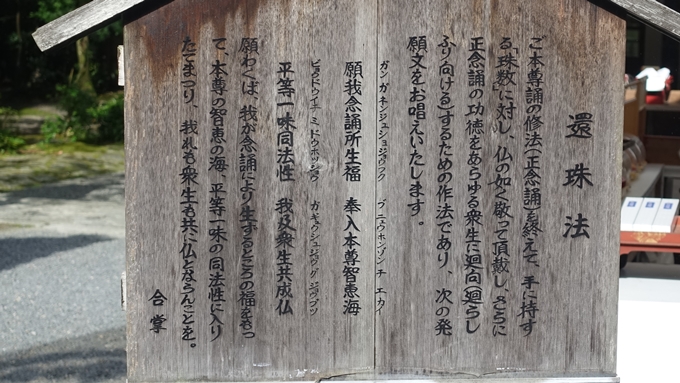 還珠法
ご本尊誦の修法(正念誦)を終えて、手に持す
る「珠数」に対し、仏の如く敬って頂戴し、さらに
正念誦の功徳をあらゆる衆生に廻向(廻らし
ふり向ける)するための作法であり、次の発
願文をお唱えいたします。
ガンガネンジュショジョウフク ブニウホンゾンチエカイ
願我念誦所生福 奉入本尊智恵海
ビョウドウイチミドウホッショウ ガギュウシュジョウグジョウブツ
平等一味同法性 我及衆生共成仏
願わくは、我が念誦により生ずるところの福をもっ
て、本尊の智恵の海、平等一味の同法性に入り
たてまつり、我れも衆生も共に仏とならんことを。
合掌